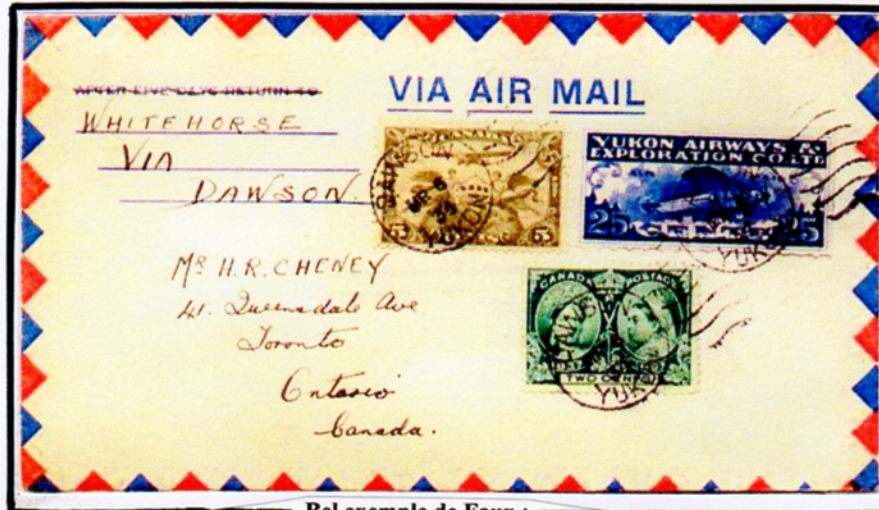 AFTER FIVE DAYS RETURN TO
VIA AIR MAIL
WHITEHORSE
VIA
DAWSON.
CANADA
5 5
DAWSON
YUKON
YUKON AIRWAYS &
EXPLORATION CO. LTD
25 25
YUKO
Mr H.R. CHENEY
41. Queensdale Ave
Toronto
Ontario
Canada.
CANADA POSTAGE
DAWS
TWO CEN
YUK
Bel exemple de Faux :